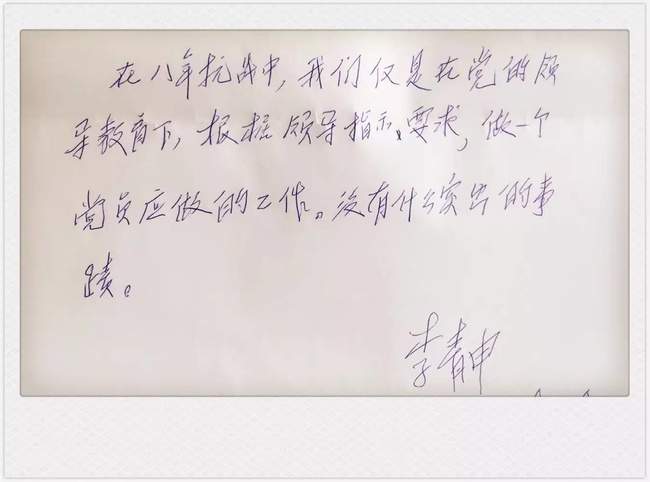 在八年抗战中，我们仅是在党的领
导教育下，根据领导指示、要求，做一个
党员应做的工作。没有什么突出的事
蹟。
李青申